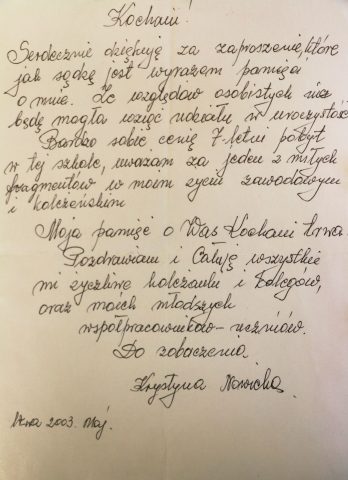 Kochani!
Serdecznie dziękuję za zaproszenie, które
jak sądzę jest wyrazem pamięci
o mnie. Ze względów osobistych nie
będę mogła wziąć udziału w uroczystość
Bardzo sobie cenię 7-letni pobyt
w tej szkole, uważam za jeden z miłych
fragmentów w moim życiu zawodowym
i koleżeńskim
Moja pamięć o Was Kochani trwa
Pozdrawiam i Całuję wszystkie
mi życzliwe koleżanki i kolegów,
oraz moich młodszych
współpracowników - uczniów.
Do zobaczenia
Krystyna Nowicka
2003. Maj.